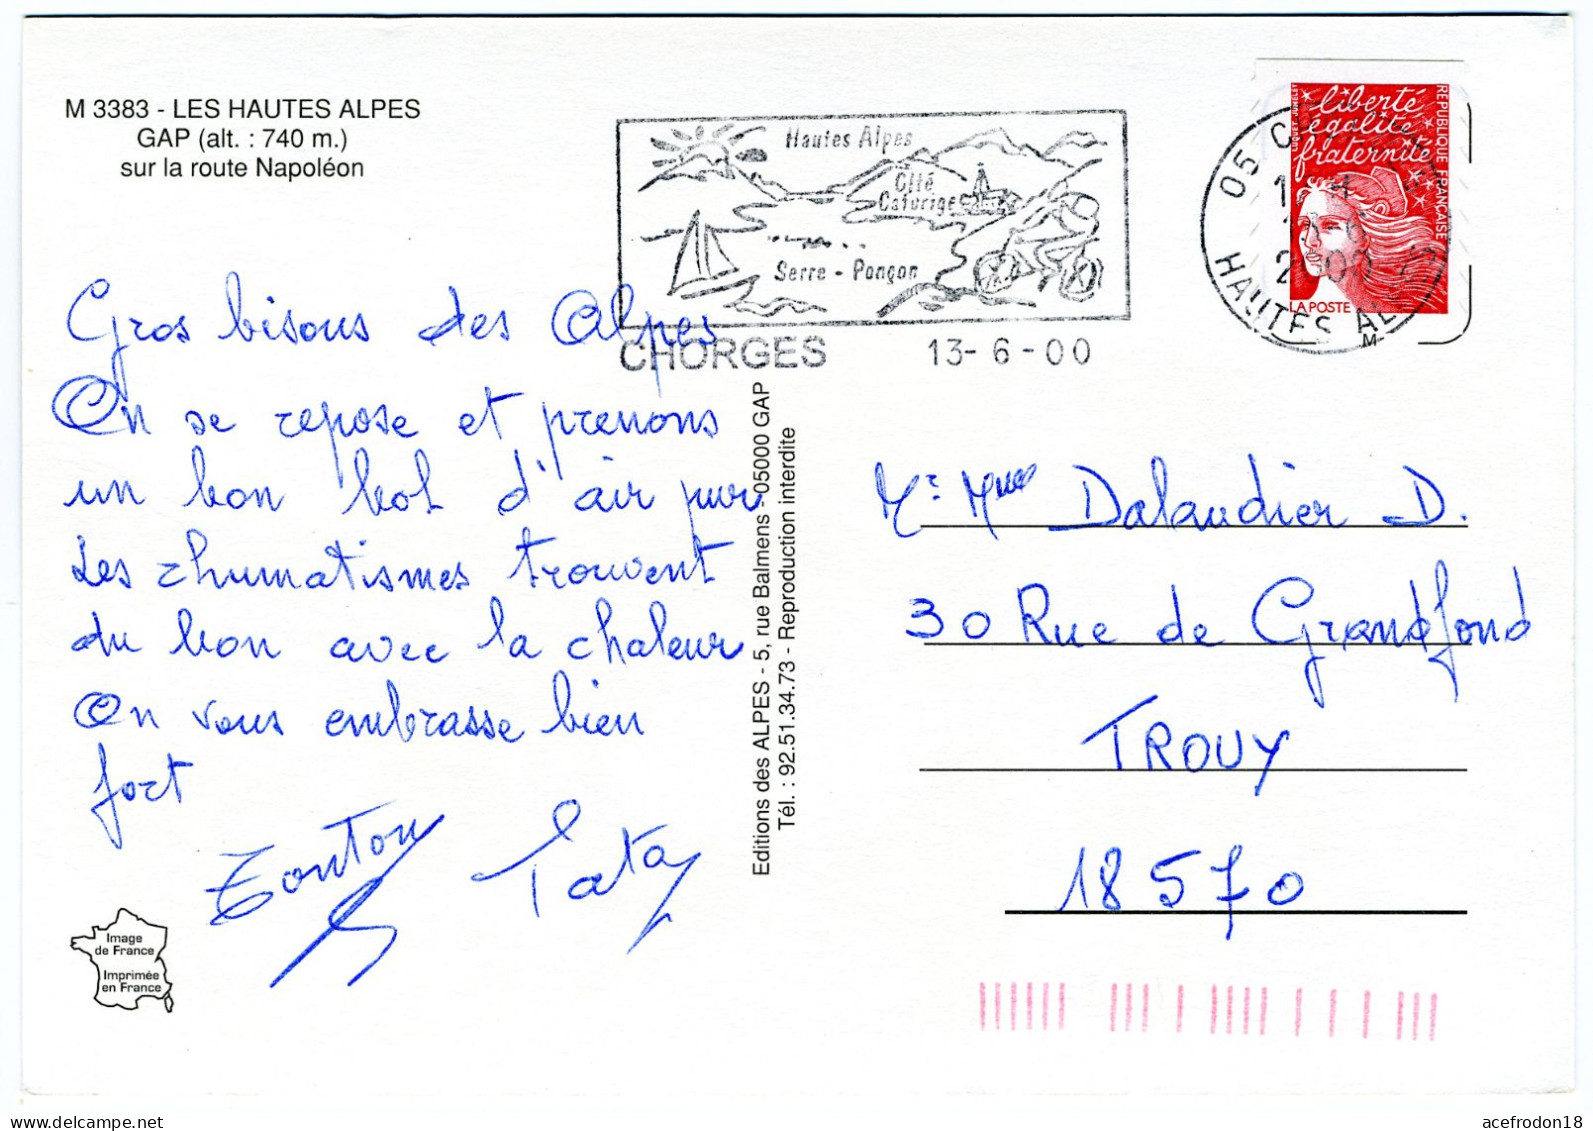 M 3383 - LES HAUTES ALPES
GAP (alt. : 740 m.)
sur la route Napoléon
Hautes Alpes
Cité
Caturige
Serre - Ponçon
CHORGES 13-6-00
liberté
égalité
fraternité
REPUBLIQUE FRANÇAISE
LA POSTE
05
HAUTES AL
Gros bisous des Alpes
On se repose et prenons
un bon bol d'air pur
Les rhumatismes trouvent
du bon avec la chaleur
On vous embrasse bien
fort
Tonton Tata
Image
de France
Imprimée
en France
Editions des ALPES - 5, rue Balmens - 05000 GAP
Tél. : 92.51.34.73 - Reproduction interdite
Mr Mme Dalaudier D.
30 Rue de Grandfond
TROUY
18570
www.delcampe.net
acefrodon18